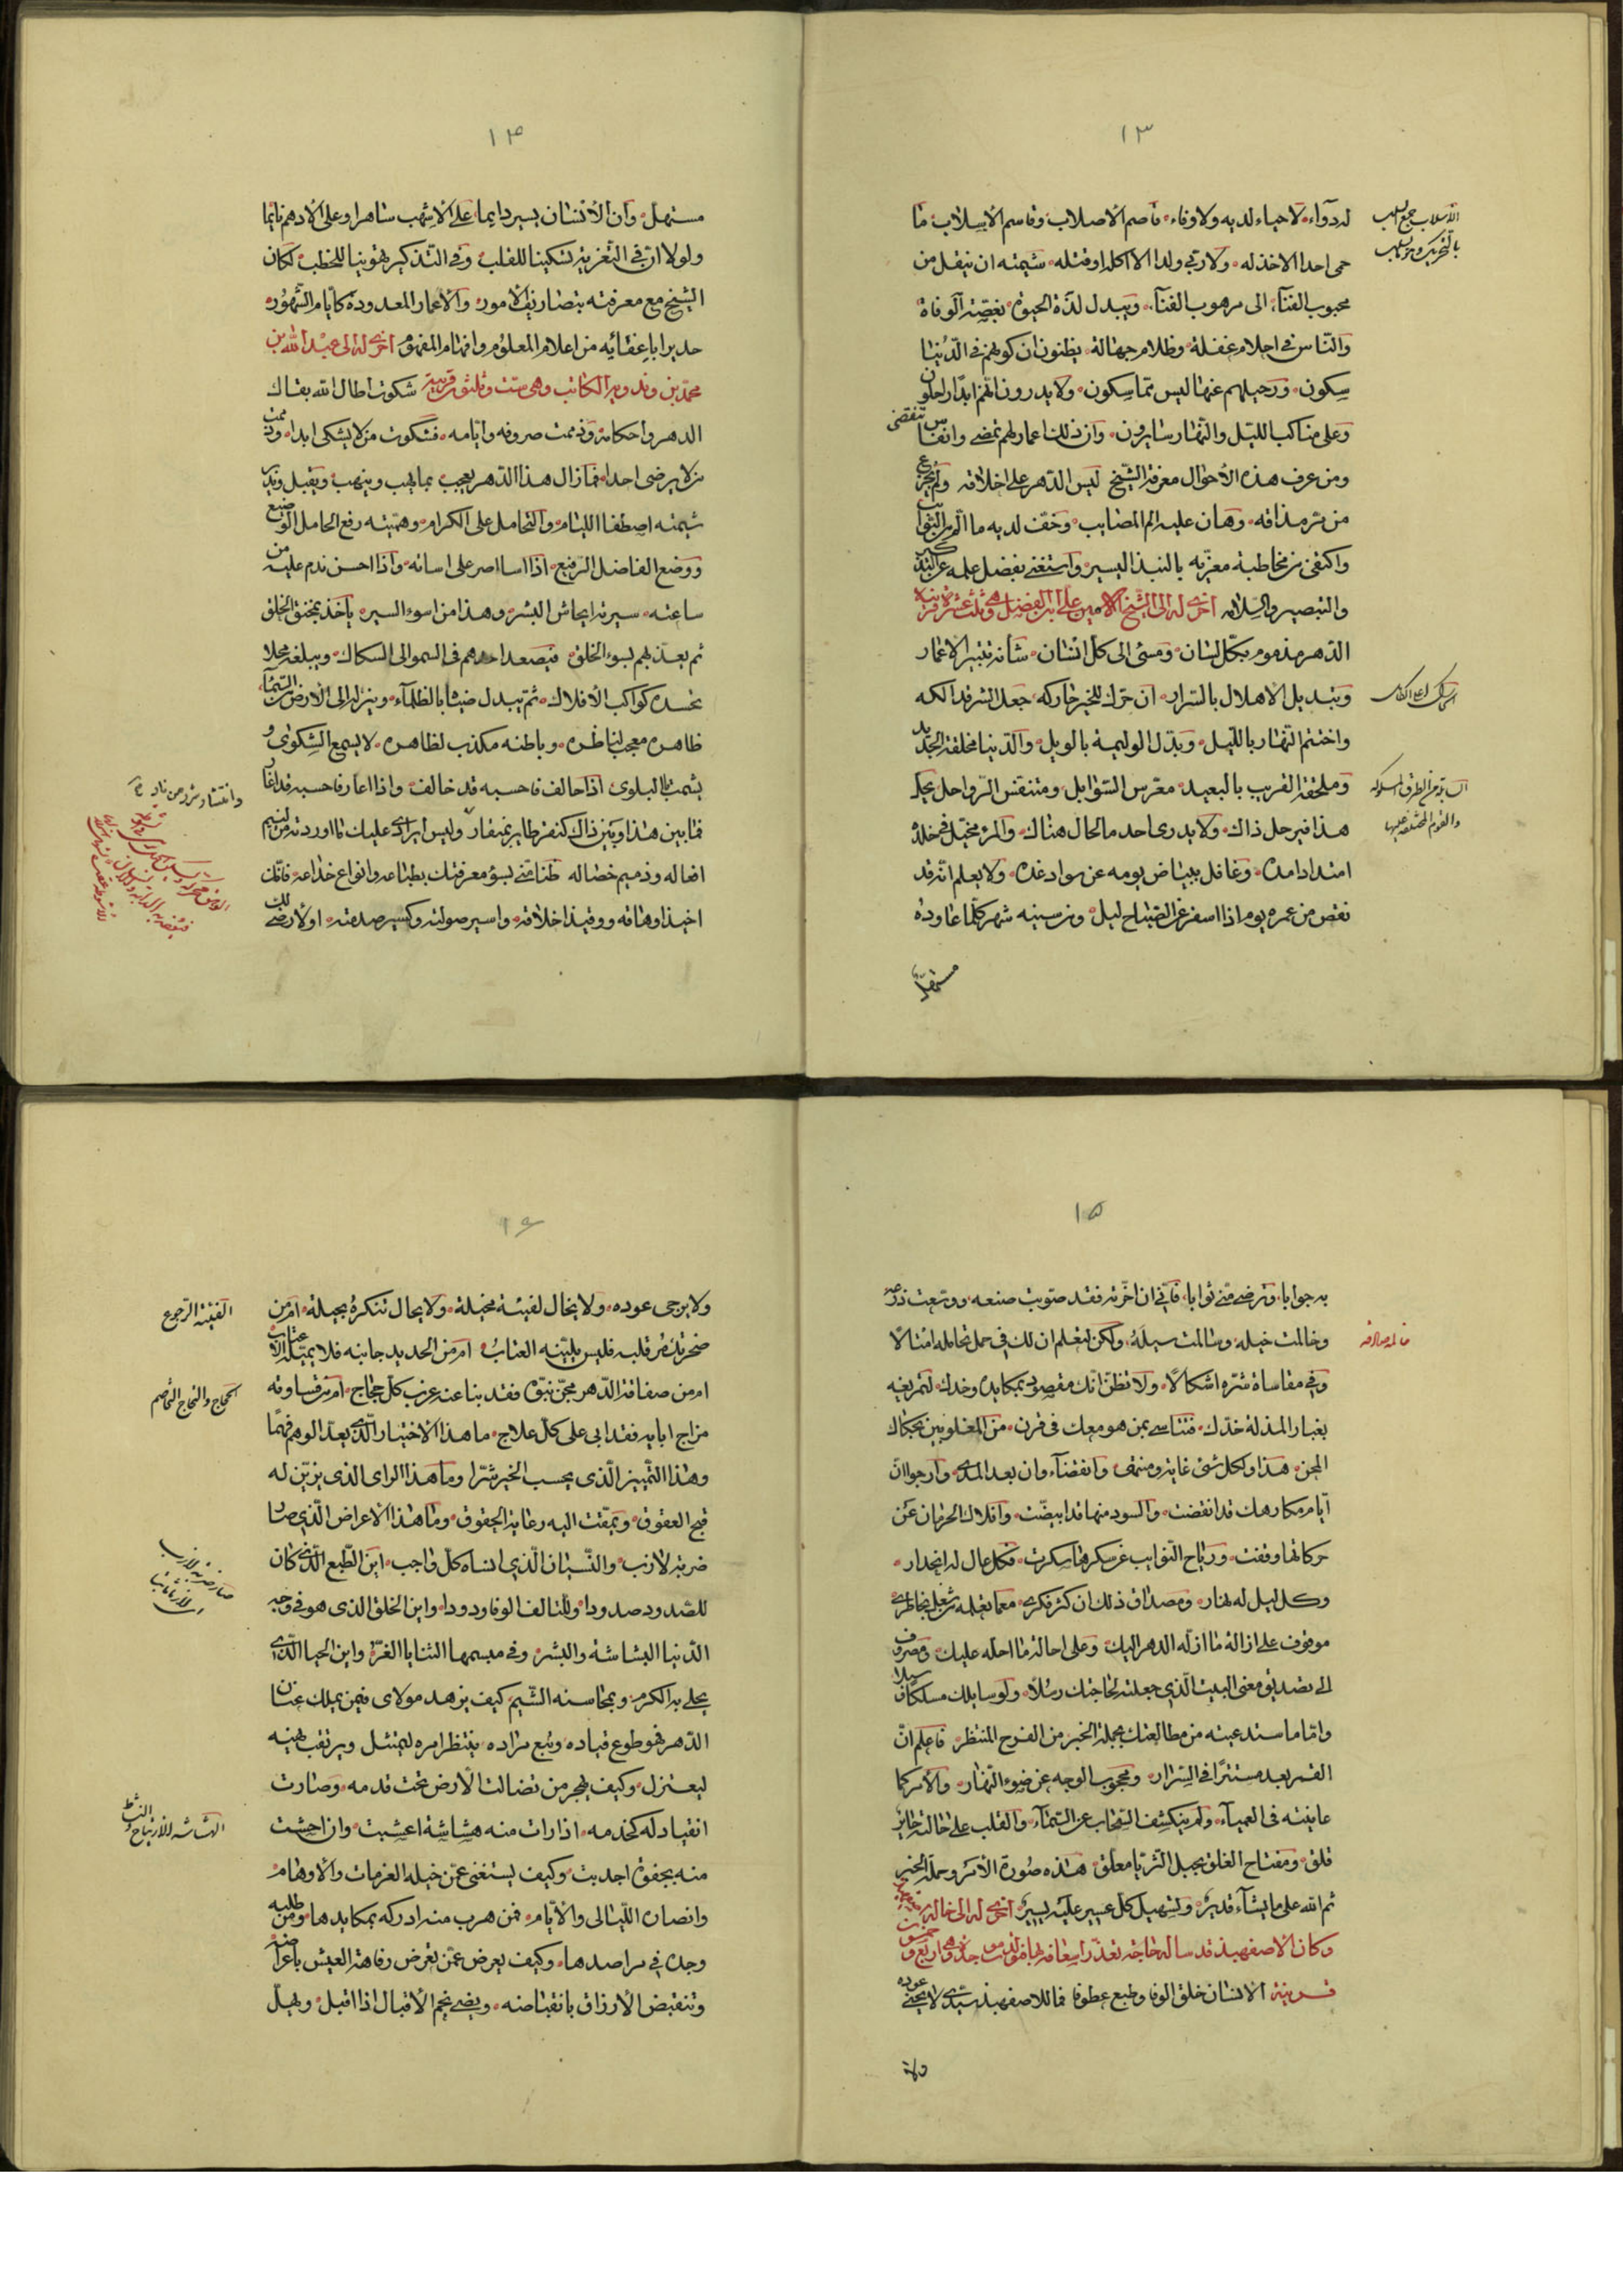 ١٣
له دوآء، لاحياء لديه ولا وفاء، قاصم الاصلاب، وقاسم الاسلاب، ما
حمى احدا الا خذله، ولا ربي ولدا الا اكله او قتله، شيمته ان ينقل من
محبوب الفنآء، الى مرهوب الفنآء، ويبدل لذة الحيوة بغصة الوفاة
والناس في احلام غفلة، وظلام جهالة، يظنون ان كونهم في الدنيا
سكون، ورحيلهم عنها ليس مما سيكون، ولا يدرون انهم ابدا راحلون
وعلى مناكب الليل والنهار سايرون، وان ذلك اعمارهم تمضي وانفاس تنقضي
ومن عرف هذه الاحوال معرفة الشيخ لبس الدهر على اخلاقه ولم يجزع
من مر مذاقه، وهان عليه الم المصايب، وخف لديه ما الم من النوايب
واكتفى من مخاطبة معزيه بالنبذ اليسير واستغنى بفضل علمه عن التذكير
والتبصير والسلام اخرى له الى الشيخ الامين علي ابن الفضل وهي ثلث عشرة قرينة
الدهر مذموم بكل لسان، ومسئ الى كل انسان، شانه تغيير الاعمار
وتبديل الاهلال بالسرار، ان حرك للخير حاركه، جعل الشر فدالكه
واختتم النهار بالليل، وبدل الوليمة بالويل، والدنيا مخلقة الجديد
وملحقة القريب بالبعيد، معرس السوابل، ومتنفس الرواحل، يحل
هذا فيرحل ذاك، ولا يدري احد ما الحال هناك، والمرء مخيل في خلده
امتداد امده، وغافل ببياض يومه عن سواد غده، ولا يعلم انه قد
نقص من عمره يوم اذا اسفر عن الصباح ليل، ومن سنيه شهر كلما عاوده
مستهل
الاسلاب جمع سلب
بالتحريك
١٤
مستهل، وان الانسان يسير دايما، على الاشهب ساهرا وعلى الادهم نايما
ولولا ان في التعزية تسكينا للقلب، وفي التذكير تهوينا للخطب، لكان
الشيخ مع معرفته بتصاريف الامور، والاعمار المعدودة كايام الشهور،
جديرا باعفائه من اعلام المعلوم وافهام المفهوم اخرى له الى عبد الله بن
محمد بن وندويه الكاتب وهي ست وثلثون قرينة شكوت اطال الله بقاك
الدهر واحكامه وذممت صروفه وايامه، فشكوت من لا يشكى ابدا، وذممت
من لا يرضى احدا، فما زال هذا الدهر يعجب بما يهب وينهب، ويقبل ويدبر
شيمته اصطفا اللئام، والتحامل على الكرام، وهمته رفع الخامل الوضيع
ووضع الفاضل الرفيع، اذا اسا اصر على اسائه، واذا احسن ندم عليه من
ساعته، سيرته ايحاش البشر، وهذا من اسوء السير، ياخذ بمخنق الخلق
ثم يعدلهم بسوء الخلق، فيصعد احدهم في السمو الى السكاك، ويبلغه محلا
تحسده كواكب الافلاك، ثم يبدل ضيئا بالظلمآء، وينزله الى الارض من السمآء
ظاهره معجب لناظره، وباطنه مكذب لظاهره، لا يسمع الشكوى و
يشمت بالبلوى، اذا حالف فاحسبه قد خالف، واذا اعار فاحسبه قد اغار
فما بين هذا وبين ذاك كنقر طاير بمنقار، وليس ايرادي عليك ما اوردته من لئيم
افعاله وذميم خصاله ظنا مني بسوء معرفتك بطباعه وانواع خداعه فانك
اخيذ اوهاقه ووقيذ اخلاقه، واسير صولته وكسير صدمته، اولا رضى لك
١٥
به جوابا، وترضى مني ثوابا، فاني ان اخرته فقد صوبت صنعه، ووسعت ذرعه
وخالمت خيله، وسالمت سيله، ولكن لتعلم ان لك في حمل تحامله امثالا
وفي مقاساة شره اشكالا، ولا تظن انك مقصود بمكايده وحدك، لتمريغه
بغبار المذلة خدك، فتتاسى بمن هو معك في قرن، من المغلوبين بحكاك
المحن، هذا ولكل شئ غاية ومنتهى، وانقضآء وان بعد المدى، وارجوا ان
ايام مكارهك قد انقضت، والسود منها قد ابيضت، وافلاك الحرمان عن
حركاتها وقفت، ورياح النوايب عن سكرها سكرت، فكل عال له انحدار،
وكل ليل له نهار، ومصداق ذلك ان كثر فكري، مع ما تعلمه من شغل خاطري
موقوف على ازالة ما ازله الدهر اليك، وعلى احالة ما احله عليك، ومصروف
الى تصديق معنى البيت الذي جعلته لحاجتك رسلا، ولوسايلك مسلكا وسبلا
واما ما استدعيته من مطالعتك بجملة الخبر من الفرج المنتظر، فاعلم ان
القمر بعد مستترا في السرار، ومحجوب الوجه عن ضوء النهار، والامر كما
عاينته في العميآء، ولم ينكشف السحاب عن السمآء، والقلب على حالته حاير
قلق، ومفتاح الغلق بحبل الثريا معلق، هذه صورة الامر وجملة الخبر
ثم الله على ما يشآء قدير، وتسهيل كل عسير عليه يسير، اخرى له الى خاله
وكان الاصفهبذ قد ساله حاجة تعذر اسعافه بها وهي اربع و
قرينة الانسان خلق الوفا وطبع عطوفا فما للاصفهبذ سيدي لا يحنى عوده
ولا
١٦
ولا يرجى عوده، ولا يخال لفيئة مخيلة، ولا يحال تنكره بحيلة، امن
صخر تدمر قلبه فليس يلينه العتاب، ام من الحديد جانبه فلا يميله الاعتاب
ام من صفاقة الدهر مجن نبوه فقد نبا عنه غرب كل حجاج، ام من قساوته
مزاج ابايه فقد ابى على كل علاج، ما هذا الاختيار الذي يعد الوهم فهما
وهذا التمييز الذي يحسب الخير شرا وما هذا الراى الذي يزين له
قبح العقوق، ويمقت اليه رعاية الحقوق، وما هذا الاعراض الذي صار
ضربة لازب، والنسيان الذي انساه كل واجب، اين الطبع الذي كان
للصدود صدودا، وللتالف الوفا ودودا، واين الخلق الذي هو في وجه
الدنيا البشاشة والبشر، وفي مبسمها الثنايا الغر، واين الحيا الذي
يحلى به الكرم، وبمحاسنه الشيم، كيف يزهد مولاي فيمن يملك عنان
الدهر فهو طوع قياده، وتبع مراده، ينتظر امره ليمتثل ويرتقب نهيه
ليعتزل، وكيف يهجر من تضالت الارض تحت قدمه، وصارت
انقياد له كخدمه، اذا رات منه هشاشة اعشبت، وان احست
منه بجفوة اجدبت، وكيف يستغنى عمن خيله العزمات والاوهام،
وانصاره الليالي والايام، فمن هرب منه ادركه بمكايدها، ومن طلبه
وجده في مراصدها، وكيف يعرض عمن تعرض رفاهة العيش باعراضه
وتنقبض الارزاق بانقباضه، ويضئ نجم الاقبال اذا اقبل، ويهل
الفيئة الرجوع
الحجاج والتحاج التخاصم
صار ضربة لازب
الهشاشة الارتياح والنشط